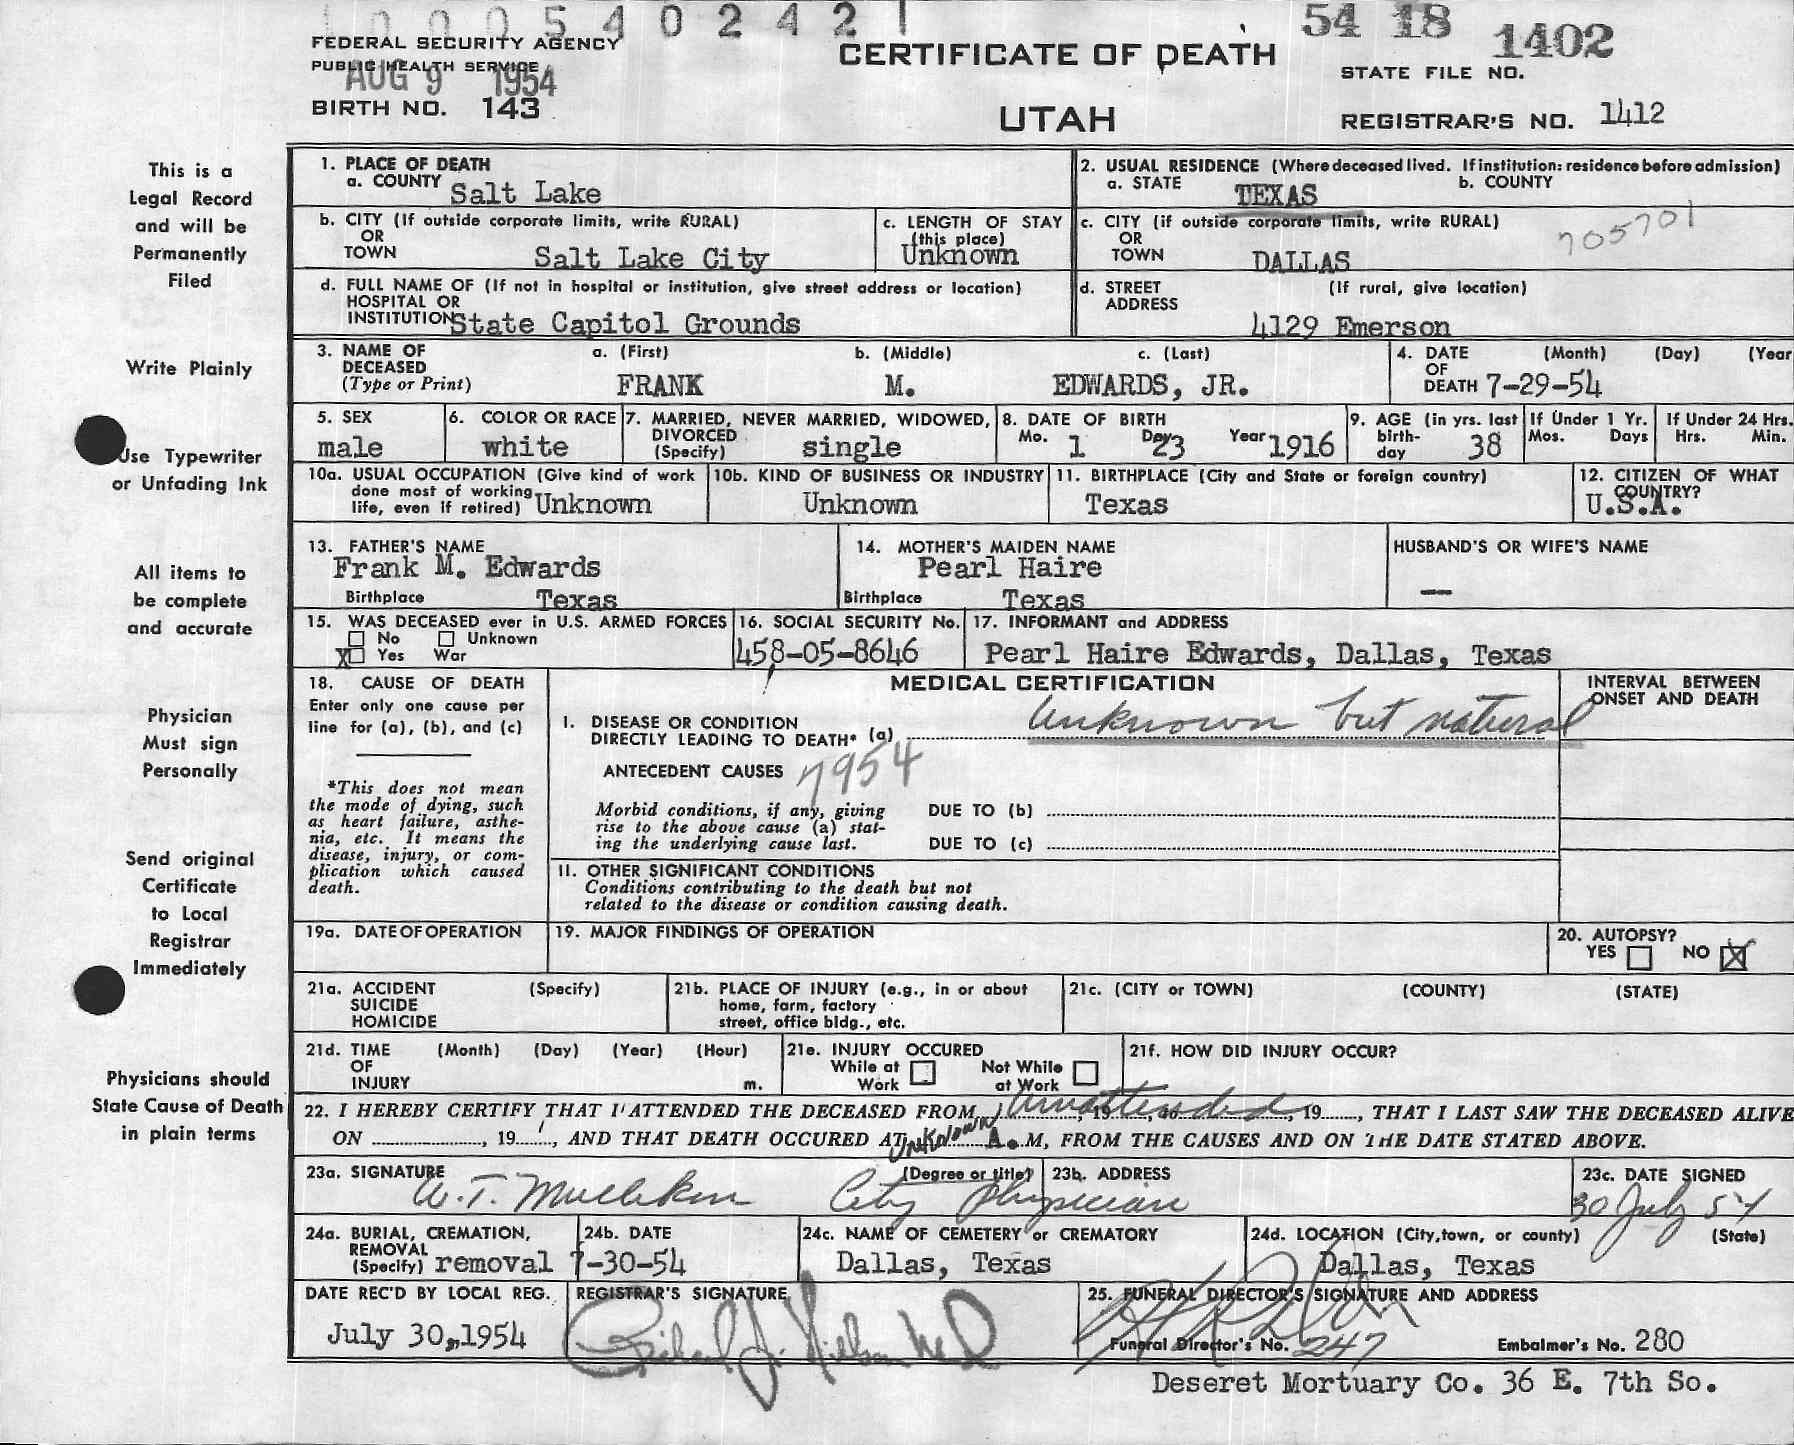 1000540242 1
54 18 1402
FEDERAL SECURITY AGENCY
PUBLIC HEALTH SERVICE
AUG 9 1954
BIRTH NO. 143
CERTIFICATE OF DEATH
UTAH
STATE FILE NO.
REGISTRAR'S NO. 1412
This is a
Legal Record
and will be
Permanently
Filed
Write Plainly
Use Typewriter
or Unfading Ink
All items to
be complete
and accurate
Physician
Must sign
Personally
Send original
Certificate
to Local
Registrar
Immediately
Physicians should
State Cause of Death
in plain terms
1. PLACE OF DEATH
a. COUNTY Salt Lake
2. USUAL RESIDENCE (Where deceased lived. If institution: residence before admission)
a. STATE TEXAS b. COUNTY
b. CITY (If outside corporate limits, write RURAL)
OR
TOWN Salt Lake City
c. LENGTH OF STAY
(this place)
Unknown
c. CITY (if outside corporate limits, write RURAL)
OR
TOWN DALLAS
705701
d. FULL NAME OF (If not in hospital or institution, give street address or location)
HOSPITAL OR
INSTITUTION State Capitol Grounds
d. STREET (If rural, give location)
ADDRESS
4129 Emerson
3. NAME OF a. (First) b. (Middle) c. (Last)
DECEASED
(Type or Print) FRANK M. EDWARDS, JR.
4. DATE (Month) (Day) (Year
OF
DEATH 7-29-54
5. SEX
male
6. COLOR OR RACE
white
7. MARRIED, NEVER MARRIED, WIDOWED,
DIVORCED
(Specify) single
8. DATE OF BIRTH
Mo. 1 Day 23 Year 1916
9. AGE (in yrs. last
birth-
day 38
If Under 1 Yr.
Mos. Days
If Under 24 Hrs.
Hrs. Min.
10a. USUAL OCCUPATION (Give kind of work
done most of working
life, even if retired) Unknown
10b. KIND OF BUSINESS OR INDUSTRY
Unknown
11. BIRTHPLACE (City and State or foreign country)
Texas
12. CITIZEN OF WHAT
COUNTRY?
U.S.A.
13. FATHER'S NAME
Frank M. Edwards
Birthplace Texas
14. MOTHER'S MAIDEN NAME
Pearl Haire
Birthplace Texas
HUSBAND'S OR WIFE'S NAME
—
15. WAS DECEASED ever in U.S. ARMED FORCES
No Unknown
X Yes War
16. SOCIAL SECURITY No.
458-05-8646
17. INFORMANT and ADDRESS
Pearl Haire Edwards, Dallas, Texas
18. CAUSE OF DEATH
Enter only one cause per
line for (a), (b), and (c)
*This does not mean
the mode of dying, such
as heart failure, asthe-
nia, etc. It means the
disease, injury, or com-
plication which caused
death.
MEDICAL CERTIFICATION
INTERVAL BETWEEN
ONSET AND DEATH
I. DISEASE OR CONDITION
DIRECTLY LEADING TO DEATH* (a) Unknown but natural
ANTECEDENT CAUSES 7954
Morbid conditions, if any, giving
rise to the above cause (a) stat-
ing the underlying cause last.
DUE TO (b)
DUE TO (c)
II. OTHER SIGNIFICANT CONDITIONS
Conditions contributing to the death but not
related to the disease or condition causing death.
19a. DATE OF OPERATION
19. MAJOR FINDINGS OF OPERATION
20. AUTOPSY?
YES NO X
21a. ACCIDENT (Specify)
SUICIDE
HOMICIDE
21b. PLACE OF INJURY (e.g., in or about
home, farm, factory
street, office bldg., etc.
21c. (CITY or TOWN) (COUNTY) (STATE)
21d. TIME (Month) (Day) (Year) (Hour)
OF
INJURY m.
21e. INJURY OCCURED
While at Work Not While at Work
21f. HOW DID INJURY OCCUR?
22. I HEREBY CERTIFY THAT I ATTENDED THE DECEASED FROM Unattended, 19, to, 19, THAT I LAST SAW THE DECEASED ALIVE
ON, 19, AND THAT DEATH OCCURED AT Unknown A.M, FROM THE CAUSES AND ON THE DATE STATED ABOVE.
23a. SIGNATURE (Degree or title)
W.T. Mulliken City Physician
23b. ADDRESS
23c. DATE SIGNED
30 July 54
24a. BURIAL, CREMATION,
REMOVAL
(Specify) removal
24b. DATE
7-30-54
24c. NAME OF CEMETERY or CREMATORY
Dallas, Texas
24d. LOCATION (City, town, or county) (State)
Dallas, Texas
DATE REC'D BY LOCAL REG.
July 30, 1954
REGISTRAR'S SIGNATURE
25. FUNERAL DIRECTOR'S SIGNATURE AND ADDRESS
Funeral Director's No. 247
Embalmer's No. 280
Deseret Mortuary Co. 36 E. 7th So.